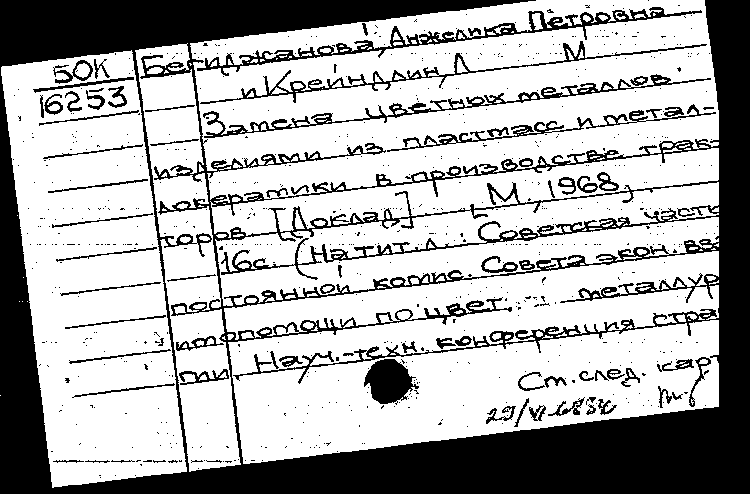 50К
16253
Бегиджанова, Анжелика Петровна
и Крейндлин, Л М
Замена цветных металлов
изделиями из пластмасс и метал-
локератики в производстве трак-
торов. [Доклад] М., 1968,
16с. (На тит.л.: Советская часть
постоянной комис. Совета экон. вза
имопомощи по цвет. металлур
гии. Науч.-техн. конференция стра
См. след. карт